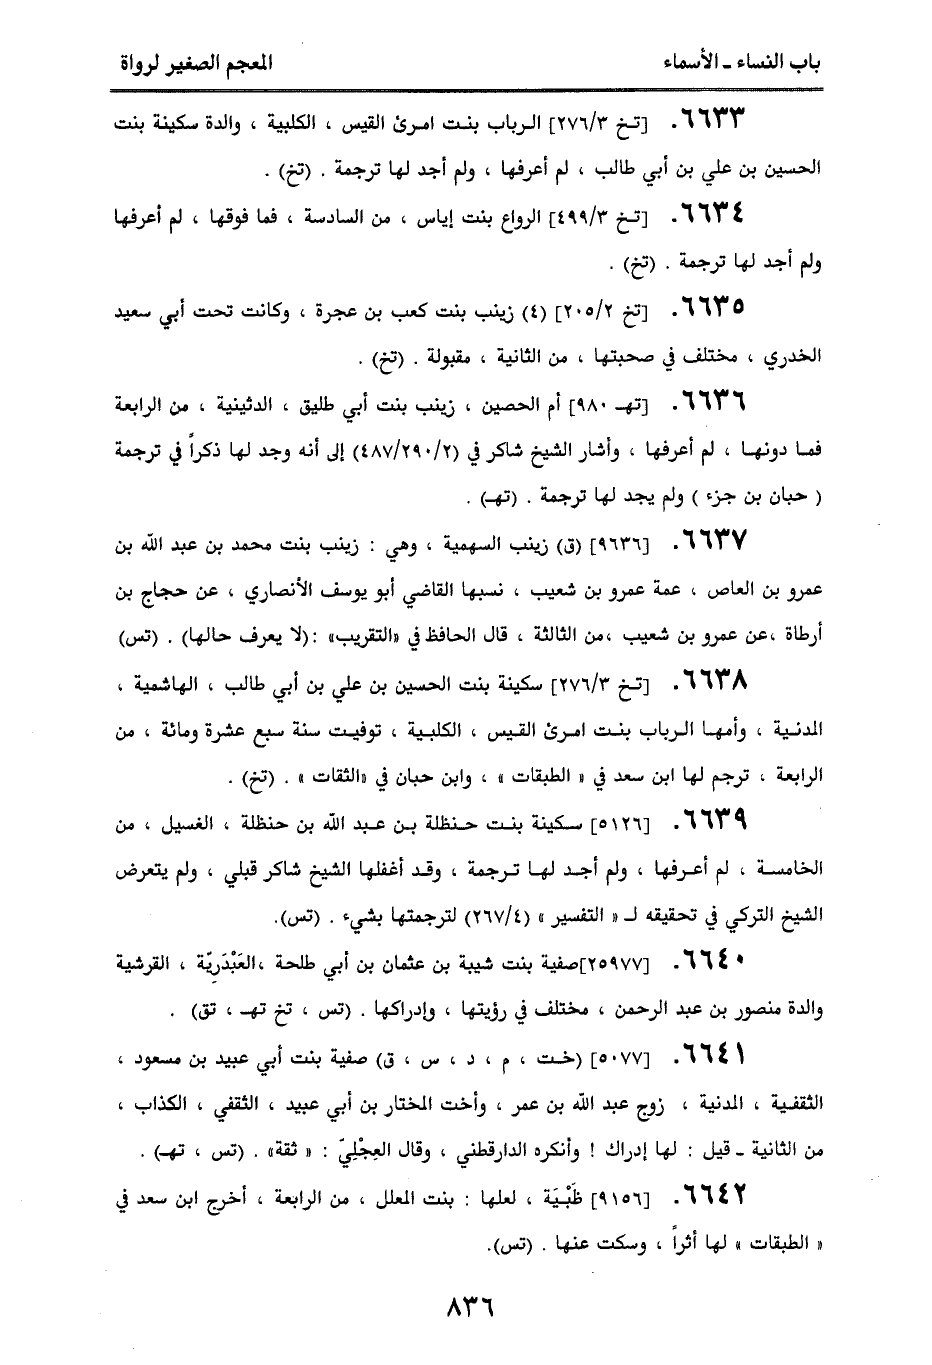 باب النساء ـ الأسماء
المعجم الصغير لرواة
٦٦٣٣. [تخ ٢٧٦/٣] الرباب بنت امرئ القيس ، الكلبية ، والدة سكينة بنت
الحسين بن علي بن أبي طالب ، لم أعرفها ، ولم أجد لها ترجمة . (تخ) .
٦٦٣٤. [تخ ٤٩٩/٣] الرواع بنت إياس ، من السادسة ، فما فوقها ، لم أعرفها
ولم أجد لها ترجمة . (تخ) .
٦٦٣٥. [تخ ٢٠٥/٢] (٤) زينب بنت كعب بن عجرة ، وكانت تحت أبي سعيد
الخدري ، مختلف في صحبتها ، من الثانية ، مقبولة . (تخ) .
٦٦٣٦. [تهـ ٩٨٠] أم الحصين ، زينب بنت أبي طليق ، الدثينية ، من الرابعة
فما دونها ، لم أعرفها ، وأشار الشيخ شاكر في (٤٨٧/٢٩٠/٢) إلى أنه وجد لها ذكراً في ترجمة
( حبان بن جزء ) ولم يجد لها ترجمة . (تهـ) .
٦٦٣٧. [٩٦٣٦] (ق) زينب السهمية ، وهي : زينب بنت محمد بن عبد الله بن
عمرو بن العاص ، عمة عمرو بن شعيب ، نسبها القاضي أبو يوسف الأنصاري ، عن حجاج بن
أرطاة ،عن عمرو بن شعيب ،من الثالثة ، قال الحافظ في «التقريب» :(لا يعرف حالها) . (تس)
٦٦٣٨. [تخ ٢٧٦/٣] سكينة بنت الحسين بن علي بن أبي طالب ، الهاشمية ،
المدنية ، وأمها الرباب بنت امرئ القيس ، الكلبية ، توفيت سنة سبع عشرة ومائة ، من
الرابعة ، ترجم لها ابن سعد في « الطبقات » ، وابن حبان في «الثقات » . (تخ) .
٦٦٣٩. [٥١٢٦] سكينة بنت حنظلة بن عبد الله بن حنظلة ، الغسيل ، من
الخامسة ، لم أعرفها ، ولم أجد لها ترجمة ، وقد أغفلها الشيخ شاكر قبلي ، ولم يتعرض
الشيخ التركي في تحقيقه لـ « التفسير » (٢٦٧/٤) لترجمتها بشيء . (تس).
٦٦٤٠. [٢٥٩٧٧]صفية بنت شيبة بن عثمان بن أبي طلحة ،العَبْدَرِيّة ، القرشية
والدة منصور بن عبد الرحمن ، مختلف في رؤيتها ، وإدراكها . (تس ، تخ تهـ ، تق) .
٦٦٤١. [٥٠٧٧] (خت ، م ، د ، س ، ق) صفية بنت أبي عبيد بن مسعود ،
الثقفية ، المدنية ، زوج عبد الله بن عمر ، وأخت المختار بن أبي عبيد ، الثقفي ، الكذاب ،
من الثانية ـ قيل : لها إدراك ! وأنكره الدارقطني ، وقال العِجْلِيّ : « ثقة» . (تس ، تهـ) .
٦٦٤٢. [٩١٥٦] ظَبْيَة ، لعلها : بنت المعلل ، من الرابعة ، أخرج ابن سعد في
« الطبقات » لها أثراً ، وسكت عنها . (تس).
٨٣٦